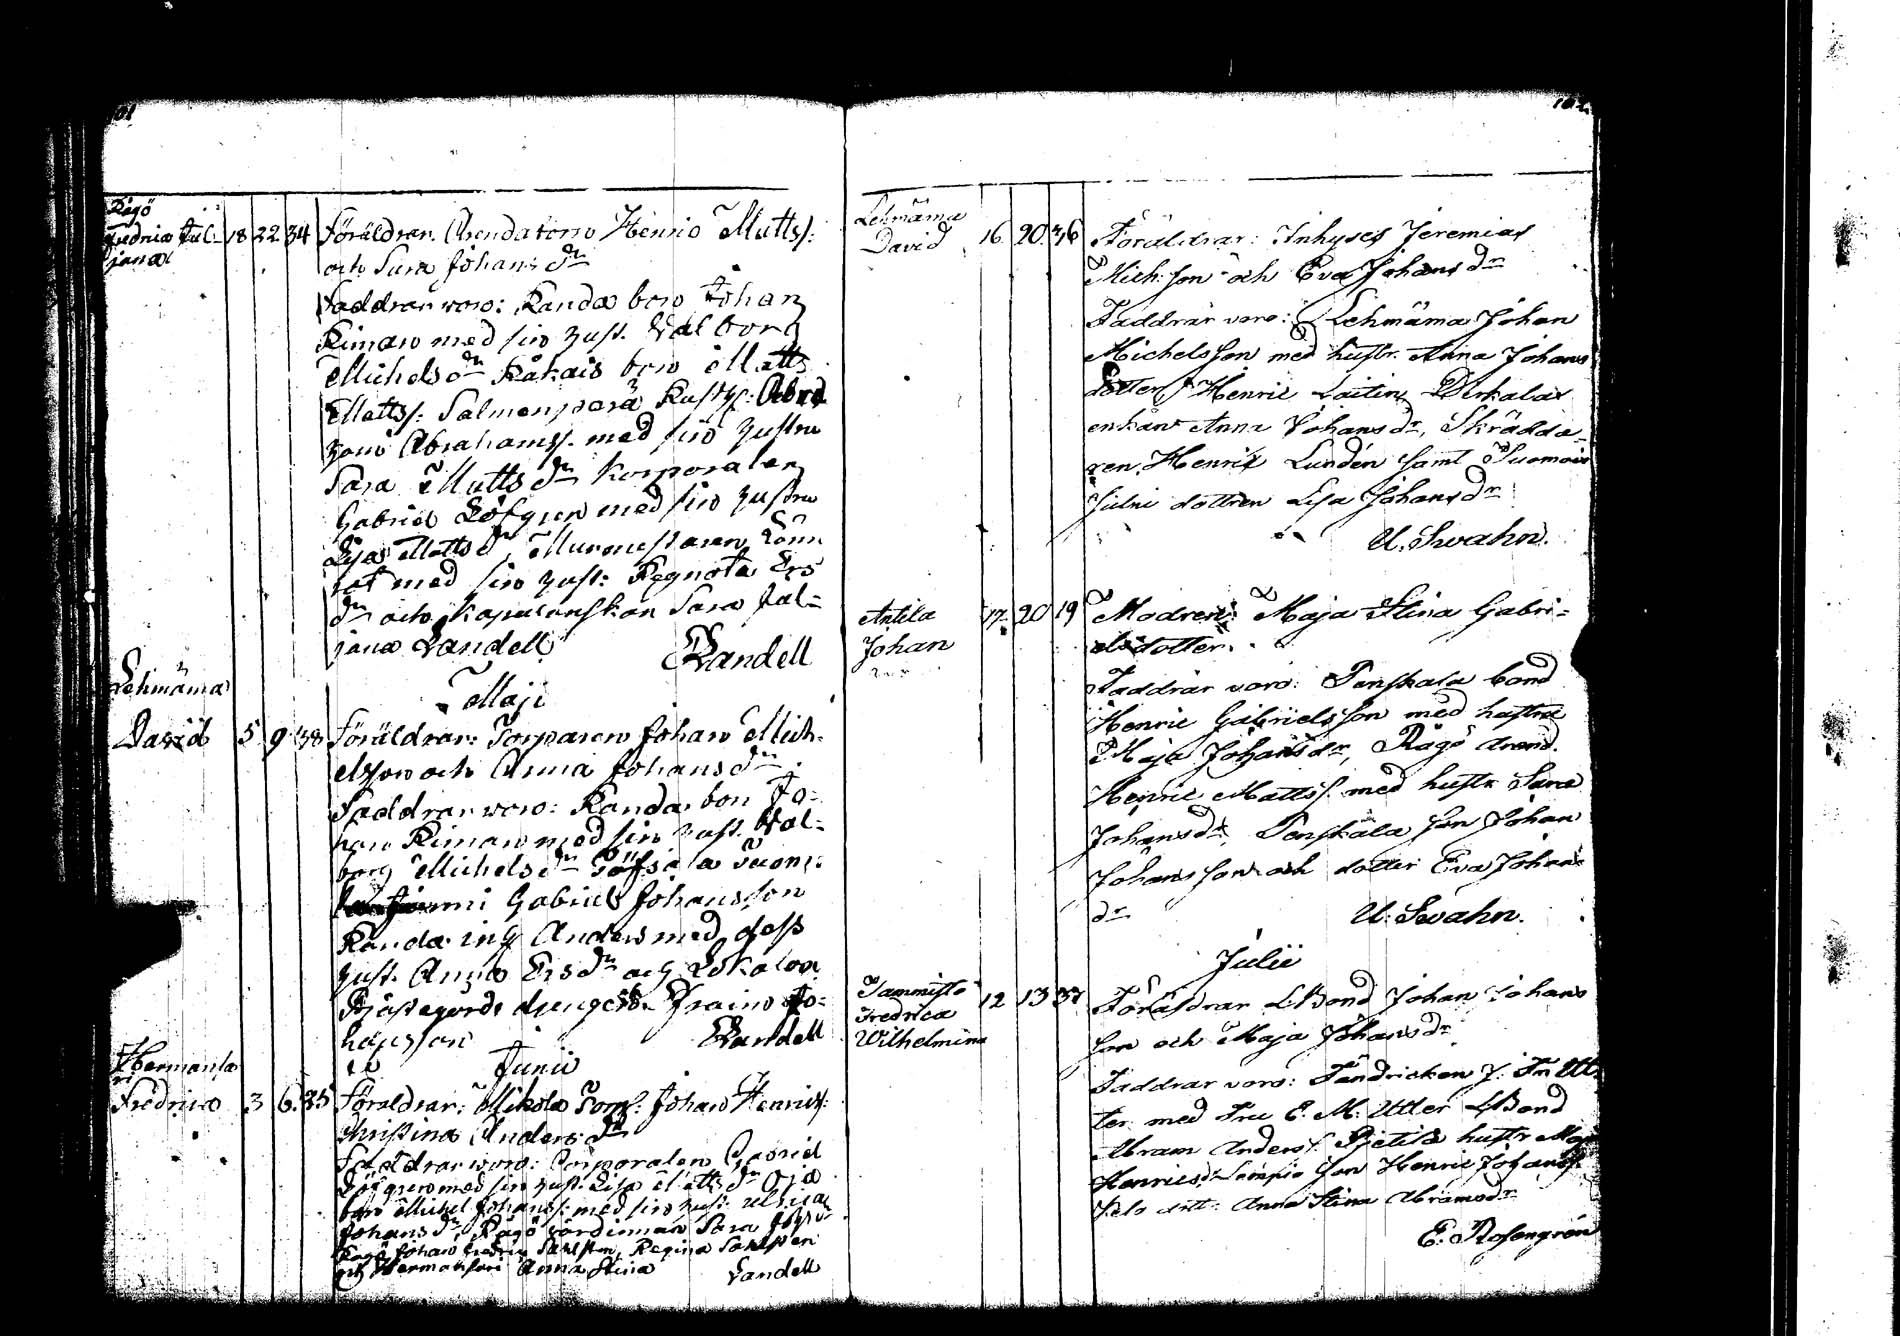 101
Rågö
Fredrica Jul-
jana
18 22 34
Föräldrar: Arendatorn Henric Matts:
och Sara Johans dr
Faddrar woro: Randa bon Johan
Riman med sin hust. Valborg
Michels dr Råkais bon Matts
Matts: Salmenperä
Abrahamss. med sin hustru
Sara Matts dr Korporalen
Gabriel Löfgren med sin hustru
Lisa Matts dr, Murmestaren Lönn
rot med sin hust: Regnata Ers
dr och Kapelanskan Sara Jul-
jana Vandell
Vandell
Maji
Lehmäma
David
5 9 38
Föräldrar: Torparen Johan Mich-
elsson och Anna Johans dr
Faddrar woro: Randa bon Jo-
han Riman med sin hust. Val-
borg Michels dr
Gabriel Johansson
Randa ing Anders med dess
hust. Anna Ers dr och
Johansson
Vandell
Junii
Hermansa
ri
Fredrica
3 6 35
Föräldrar: Mikola Torp: Johan Henriss:
Christina Anders dr
Faddrar woro: Corporalen Gabriel
Löfgren med sin hust. Lisa Matts dr Oja
bon Michel Johanss: med sin hust. Ulrica
Johans dr, Rågö värdinnan Sara Johs dr
Rågö Johan Fredric Sahlsten, Regina Sahlsten
och Hermansari Anna Stina
Vandell
102
Lehmäma
David
16 20 36
Föräldrar: Inhyses Jeremias
Mich: son och Eva Johans dr
Faddrar voro: Lehmäma Johan
Michelsson med hustr. Anna Johans
dotter, Henric Laitin,
enkan Anna Johans dr, Skrädda-
ren Henric Lundén samt Suomais
Julni dottren Lisa Johans dr
U. Swahn.
Antila
Johan
17 20 19
Modren: Maja Stina Gabri-
elsdotter.
Faddrar voro: Penskala bond
Henric Gabrielsson med hustru
Maja Johans dr, Rågö Arend.
Henric Mattss. med hustr Sara
Johans dr, Penskala son Johan
Johansson och dotter Eva Johans
dr
U. Swahn.
Julii
Tammisto
Fredrica
Wilhelmina
12 13 37
Föräldrar LBond Johan Johans
son och Maja Johans dr
Faddrar voro: Fändricken J. Fr Utt
ter med Fru E. M. Utter LBond
Abram Anderss. Pjetilä hustr Maja
Henrics dr Lempio son Henric Johanss.
dott: Anna Stina Abrams dr
E. Rosengrén